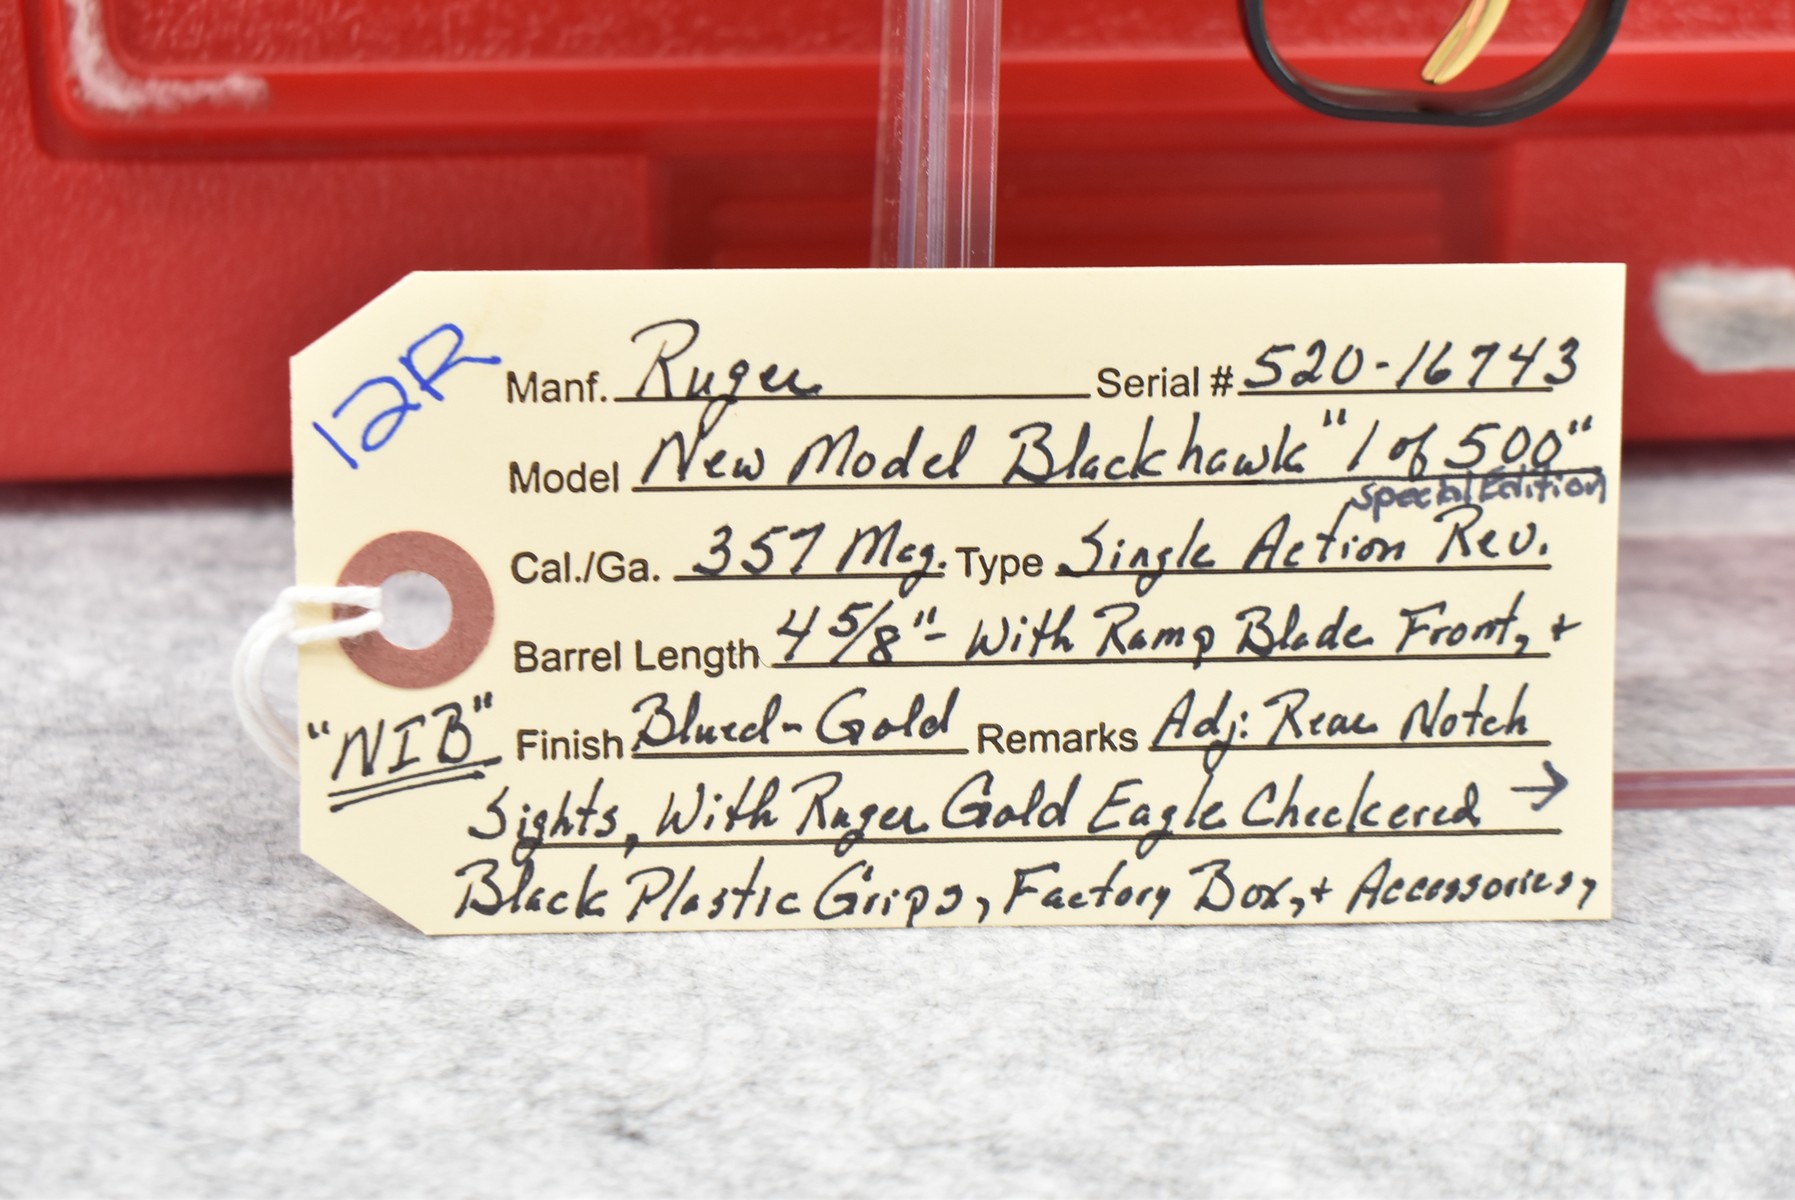 12R
Manf. Ruger Serial # 520-16743
Model New Model Blackhawk "1 of 500"
Special Edition
Cal./Ga. 357 Mag. Type Single Action Rev.
Barrel Length 4 5/8"- With Ramp Blade Front, +
"NIB" Finish Blued-Gold Remarks Adj: Rear Notch
Sights, With Ruger Gold Eagle Checkered →
Black Plastic Grips, Factory Box, + Accessories,